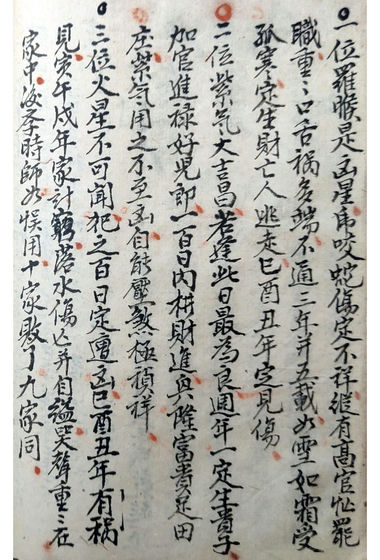 一位羅睺是凶星虎咬蛇傷定不祥縱有高官恐罷
職重〻口舌禍多端不過三年并五載如雪如霜受
孤寒定生財亡人迯走巳酉丑年定見傷
二位紫氣大吉昌若逢此日最為良週年一定生貴子
加官進禄好兒郎一百日內耕財進興隆富貴足田
庄紫氣用之不至凶自能壓煞極禎祥
三位火星不可聞犯之百日定遭凶巳酉丑年有禍
見寅午戌年家計窮落水傷亡并自縊哭聲重〻在
家中海季時師如悮用十家敗了九家同